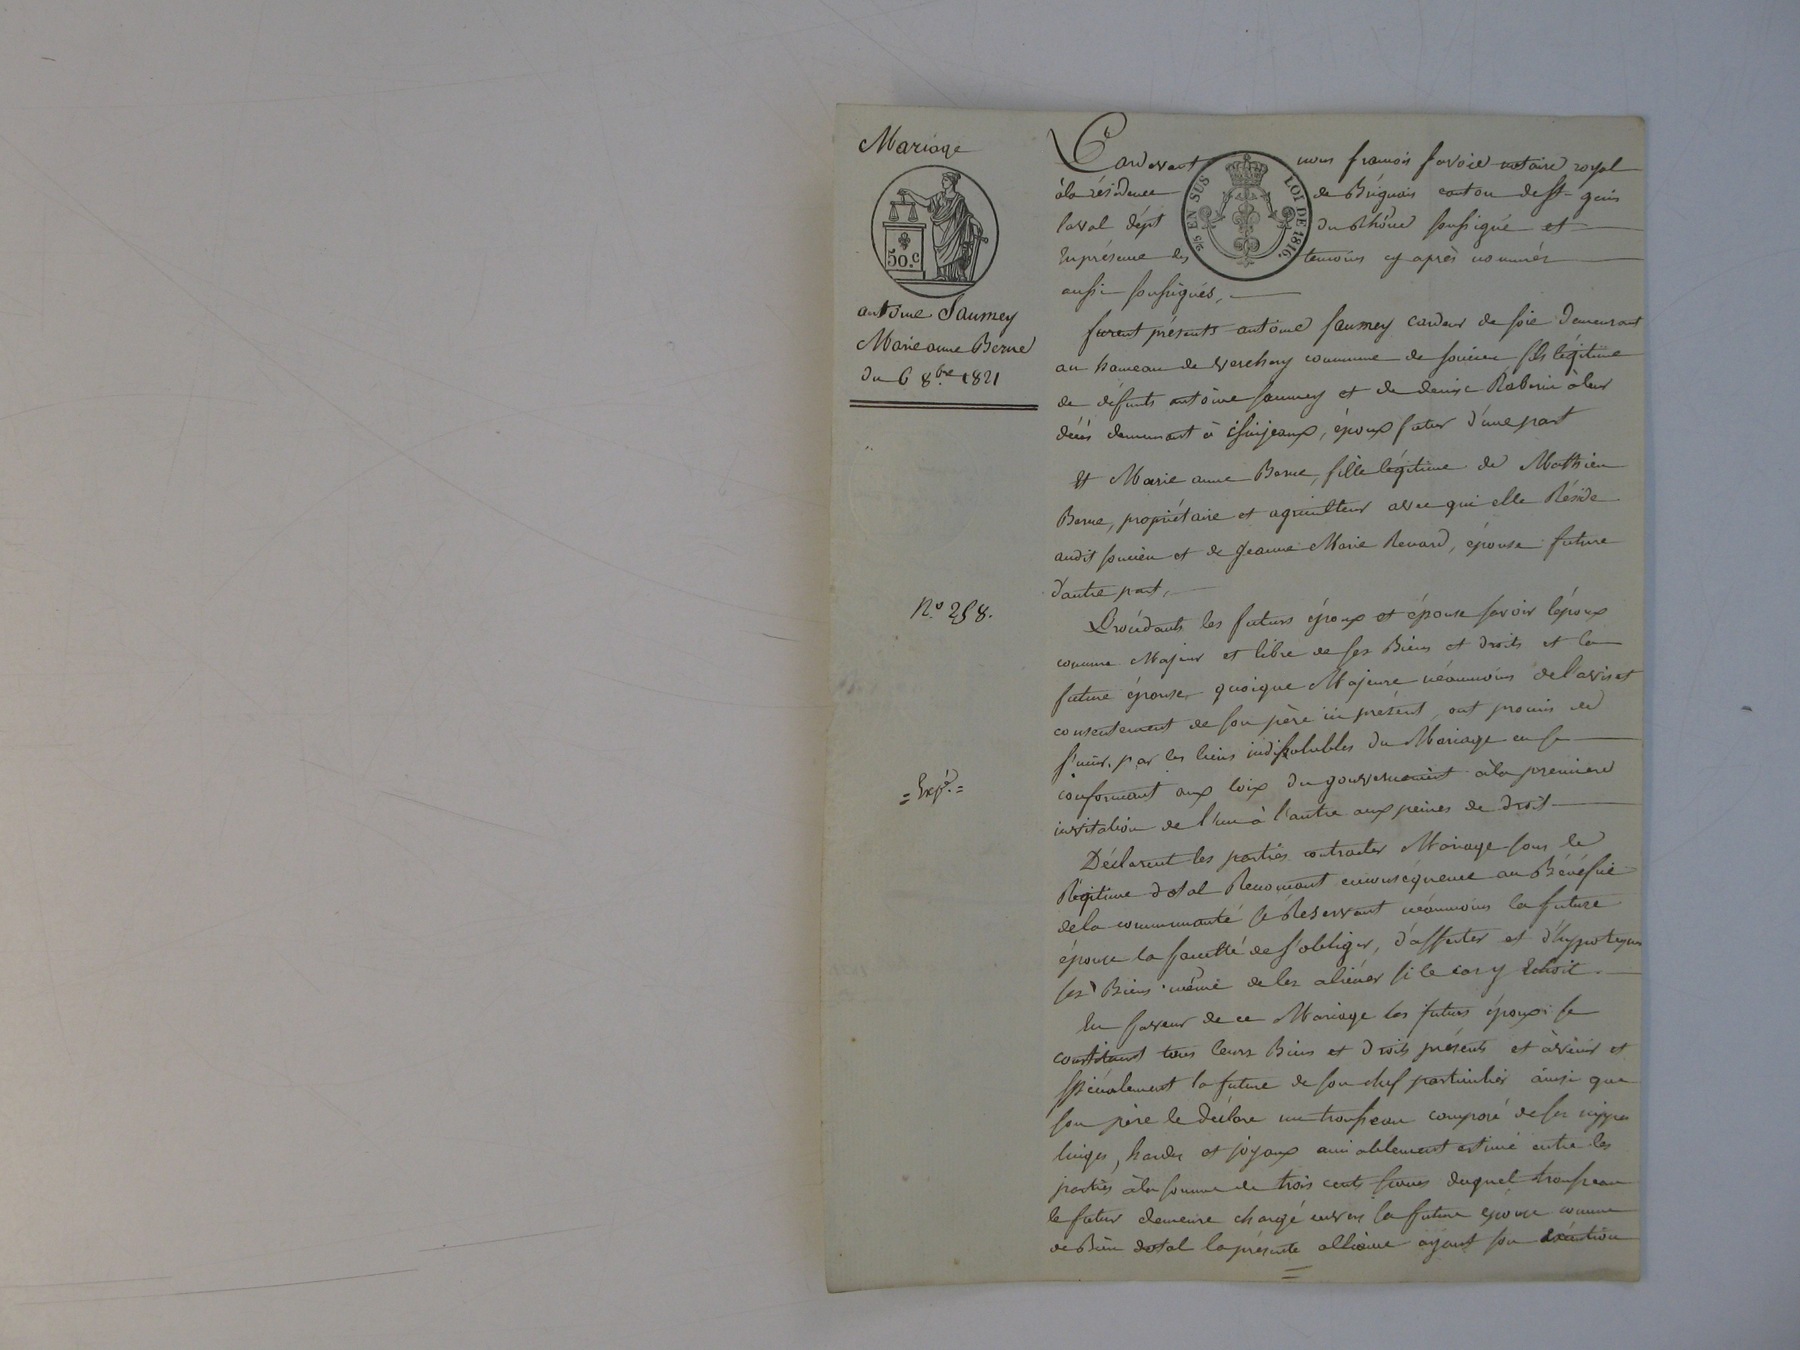 Mariage
50.c
antoine Saumey
Marie anne Berne
du 6 8bre 1821
N.o 258.
= Exp.é =
Pardevant nous françois favoie notaire royal
EN SUS LOI DE 1816.
à la résidence de Brignais canton de St genis
laval dépt du Rhône soussigné et
En présence des temoins cy après nommés
aussi soussignés,
furent présents antoine Saumey cardeur de soie demeurant
au hameau de verchery commune de soucieu fils légitime
de défunts antoine saumey et de denise Raberin à leur
décès demeurant à , époux futur d'une part
Et Marie anne Berne, fille légitime de Mathieu
Berne, propriétaire et agriculteur avec qui elle Réside
audit soucieu et de Jeanne Marie Renard, épouse future
d'autre part,
Procédants les futurs époux et épouse savoir l'époux
comme Majeur et libre de ses Biens et droits et la
future épouse, quoique Majeure néanmoins de l'avis et
consentement de son père ici présent, ont promis de
s'unir par les liens indissolubles du Mariage en se
conformant aux loix du gouvernement à la première
invitation de l'un à l'autre aux peines de droit
Déclarent les parties contracter Mariage sous le
Régime dotal Renonçant en conséquence au Bénéfice
de la communauté se Réservant néanmoins la future
épouse la faculté de s'obliger, d'affecter et d'hypotequer
ses Biens même de les aliéner si le cas y Echoit.
En faveur de ce Mariage les futurs époux se
constituent tous leurs Biens et droits présents et àvenir et
spécialement la future de son chef particulier ainsi que
son père le déclare un trousseau composé de ses nippes
linges, hardes et joyaux amiablement estimé entre les
parties à la somme de trois cents francs duquel trousseau
le futur demeure chargé envers la future épouse comme
de Bien dotal la présente alliance ayant son exécution